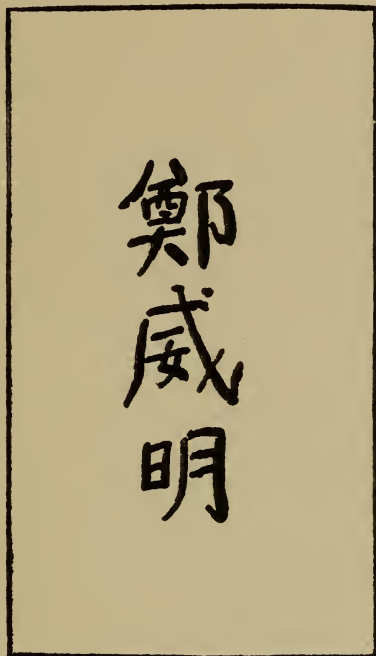 鄭威明